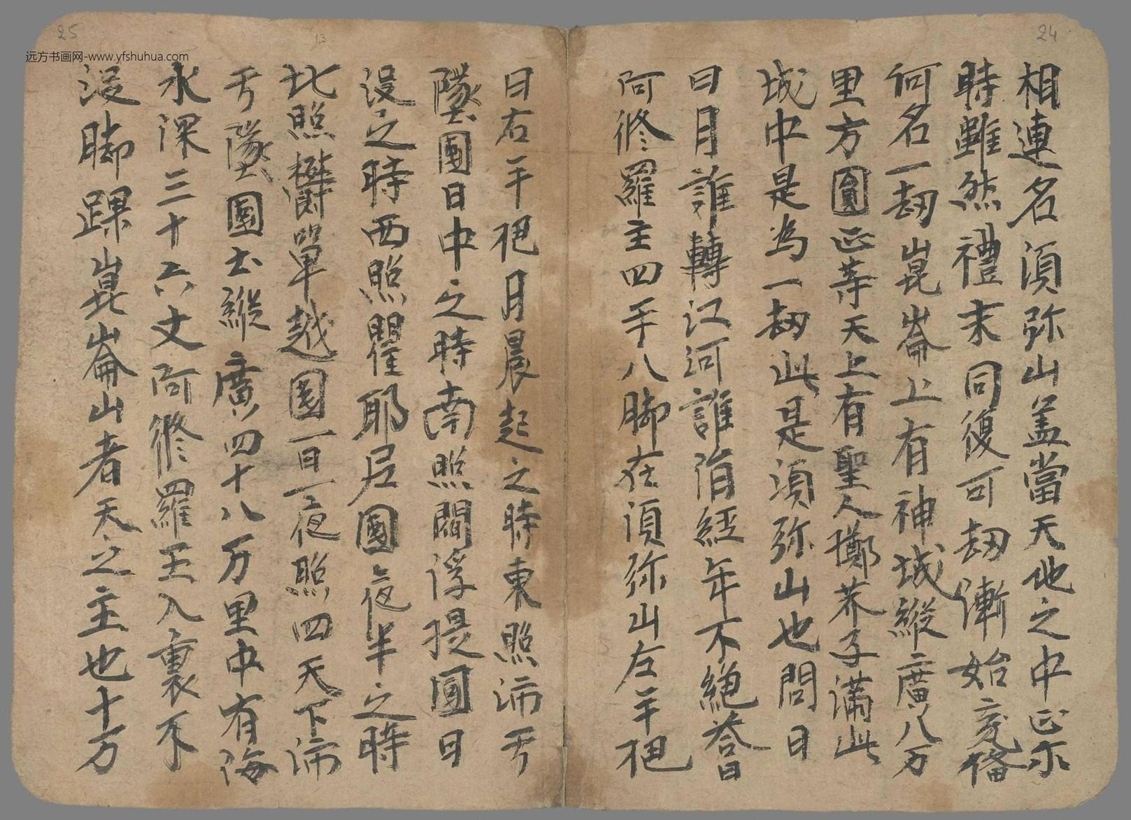 相連名須弥山盖當天地之中正尔
時雖然禮末同復可劫漸始立脩
何名一劫崑崙上有神城縱廣八万
里方圓正等天上有聖人擲芥子滿此
城中是為一劫此是須弥山也問曰
日月誰轉江河誰俏經年不絶荅曰
阿修羅主四手八脚在須弥山左手把
日右手把月晨起之時東照沛于
墜國日中之時南照閻浮提國日
沒之時西照瞿耶尼國夜半之時
北照欝單越國一日一夜照四天下沛
于墜國土縱廣四十八万里中有海
水深三十六丈阿修羅王入裏不
沒脚踝崑崙山者天之主也十万
25
24
13
远方书画网-www.yfshuhua.com